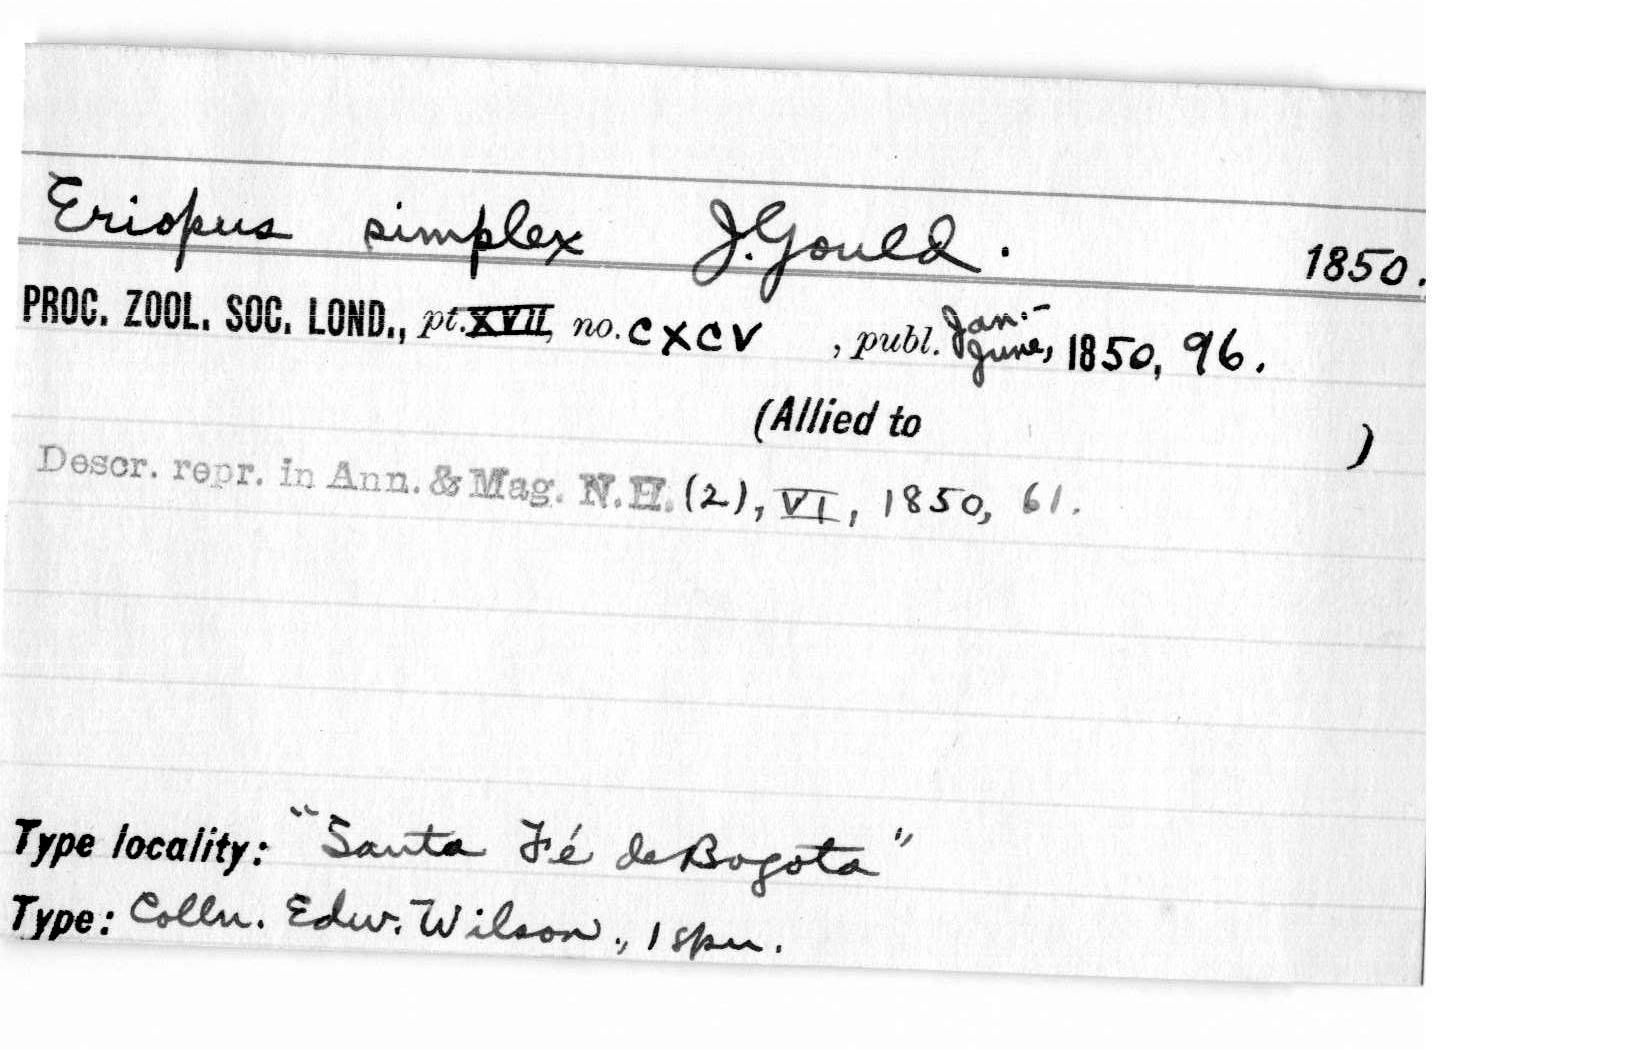 Eriopus simplex J. Gould. 1850.
PROC. ZOOL. SOC. LOND., pt. XVII, no. CXCV , publ. Jan.- June, 1850, 96.
(Allied to )
Descr. repr. in Ann. & Mag. N.H. (2), VI, 1850, 61.
Type locality: "Santa Fé de Bogota"
Type: Colln. Edw. Wilson., 1 spn.